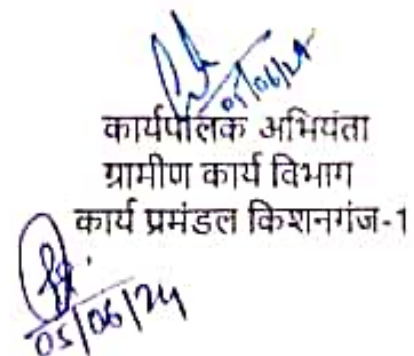 05/06/24
कार्यपालक अभियंता
ग्रामीण कार्य विभाग
कार्य प्रमंडल किशनगंज-1
05/06/24